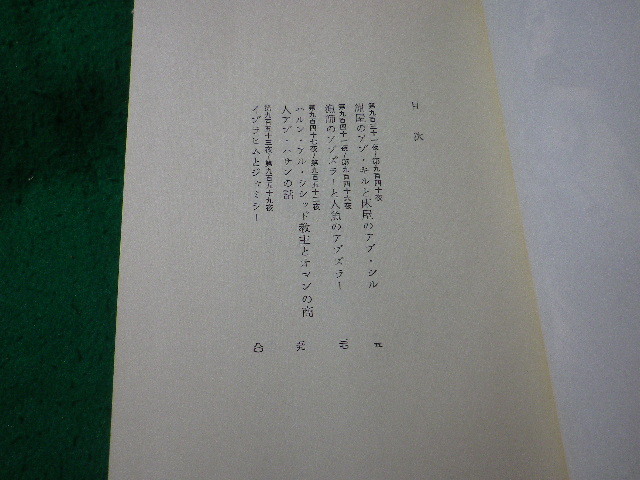 目次
第九百三十一夜―第九百四十夜
染屋のアブ・キルと床屋のアブ・シル 五
第九百四十一夜―第九百四十六夜
漁師のアブズラーと人魚のアブズラー
第九百四十七夜―第九百五十二夜
ハルン・アル・ラシッド教主とオマンの商
人アブ・ハサンの話
第九百五十三夜―第九百五十九夜
イブラヒムとジャミラー